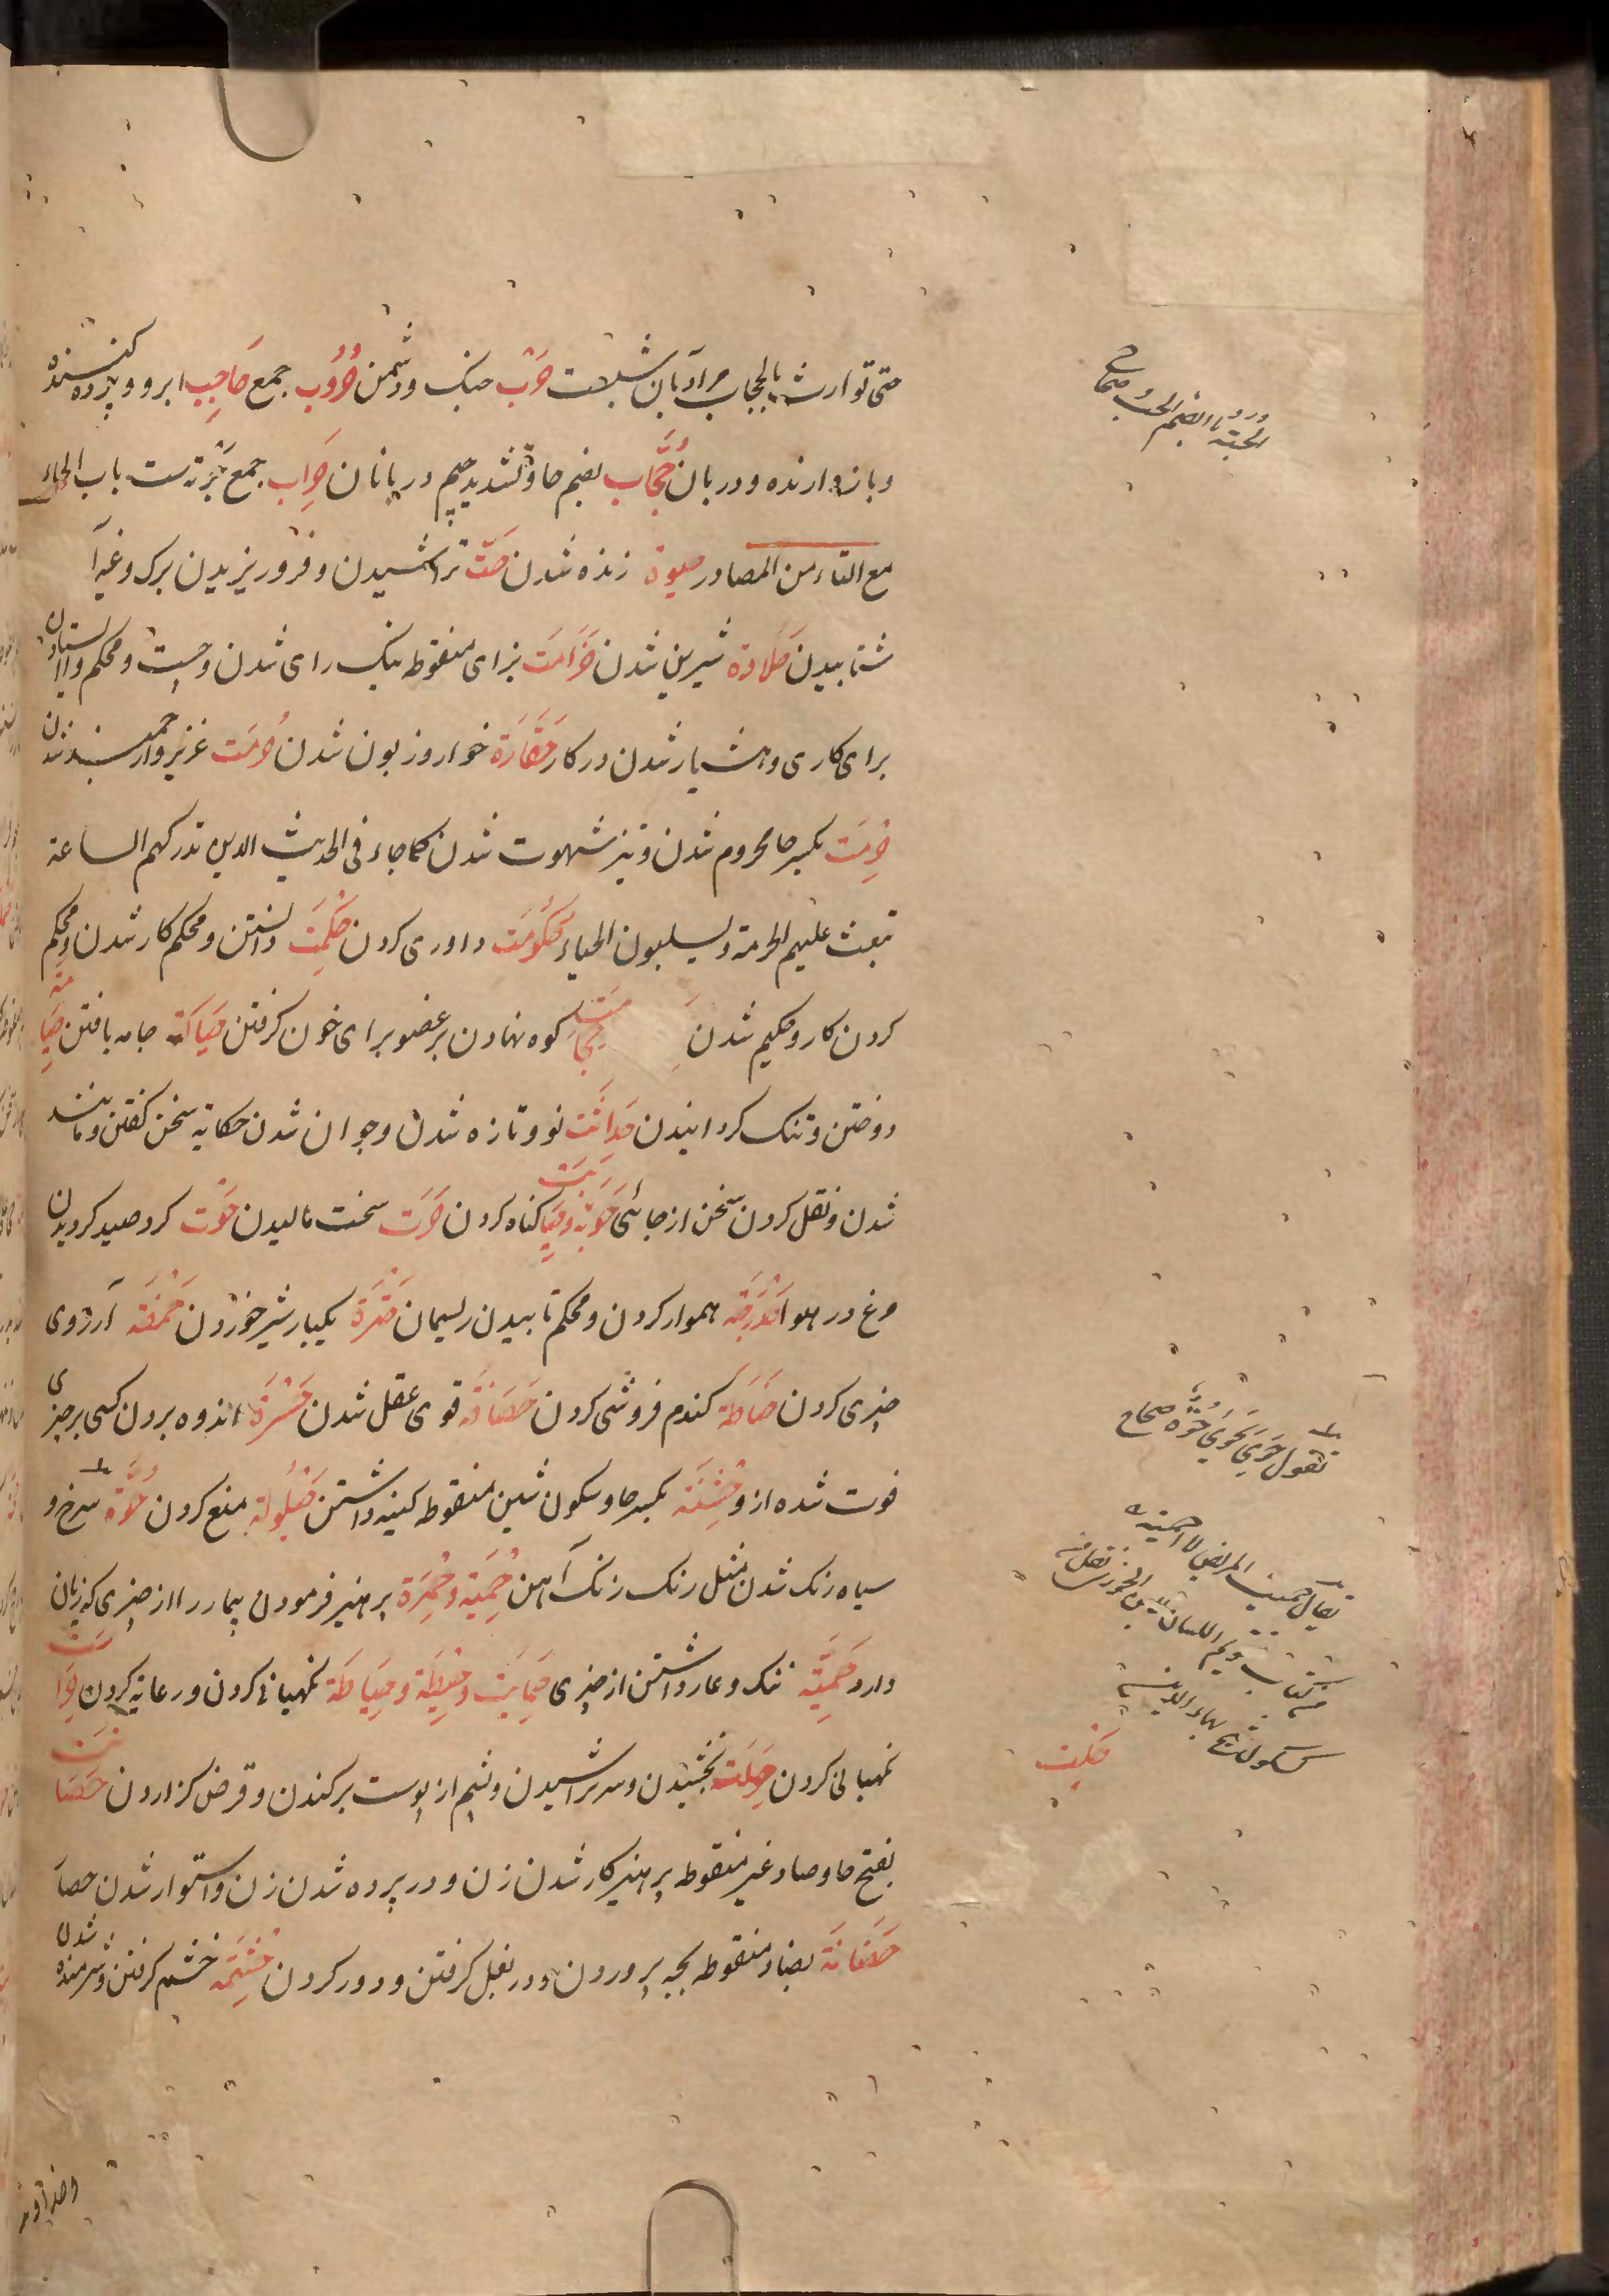 حتی توارت بالحجاب مراد بآن شب است حَرْب جنک و دشمن حُرُوب جمع حَاجِب ابرو و پرده کننده
و بازدارنده و دربان حُجَّاب بضم حا و تشدید جیم دربانان حِرَاب جمع حربه ست باب الحاء
مع التاء من المصادر حیوة زنده شدن حَتّ تراشیدن و فرو ریزیدن برک و غیر آ
شتابیدن حَلَاوَة شیرین شدن حَزَامَت بزای منقوطه نیک رای شدن و چست و محکم و ایستادن
برای کاری و هشیار شدن در کار حَقَارَة خوار و زبون شدن حُرمَت عزیز و ارجمند شدن
حِرمَت بکسر حا محروم شدن و تیز شهوت شدن کما جاء فی الحدیث الذین تدرکهم الساعة
تبعث علیهم الحرمة و یسلبون الحیاء حُکُومَت داوری کردن حِکْمَت دانستن و محکم کار شدن و محکم
کردن کار و حکیم شدن حِجَامَت کوه نهادن بر عضو برای خون کرفتن حِیَاکَة جامه بافتن حِیَاصَة
دوختن و تنک کردانیدن حَدَاثَت نو و تازه شدن و جوان شدن حکایة سخن کفتن و مانند
شدن و نقل کردن سخن از جائی حَوْبَة و حِیَابَت کناه کردن حَرْت سخت مالیدن حَوْت کرد صید کردیدن
مرغ در هوا حَدْرَجَة هموار کردن و محکم تابیدن ریسمان حَتْرَة یکبار شیر خوردن آرزوی
چیزی کردن حِنَاطَة کندم فروشی کردن حَصَافَة قوی عقل شدن حَسْرَة اندوه بردن کسی بر چیزی
فوت شده از و حِشْنَة بکسر حا و سکون شین منقوطه کینه داشتن حَیْلُولَة منع کردن حُوَّة سرخ و
سیاه رنک شدن مثل رنک زنک آهن حِمْیَة و حِمْیَة پرهیز فرمودن بیمار را از چیزی که زیان
دارد حَمِیَّة ننک و عار داشتن از چیزی حِمَایَت و حِیْطَة و حِیَاطَة نکهبانی کردن و رعایة کردن حِرَاسَت
نکهبانی کردن بخشیدن و سر تراشیدن و پشم از پوست برکندن و قرض کزاردن حَصَانَت
بفتح حا و صاد غیر منقوطه پرهیزکار شدن زن و در پرده شدن زن و استوار شدن حصا
حَضَانَة بضاد منقوطه بچه پروردن و در بغل کرفتن و دور کردن حِشْمَة خشم کرفتن و شرمنده شدن
الحوبة بالضم الحوب صحاح
تقول حَوِیَ یَحْوَی حُوَّة صحاح
یقال حمیت المریض احمیه
من کتاب تقویم اللسان لابن الجوزی نقل من
کشکول شیخ بهاء الدین